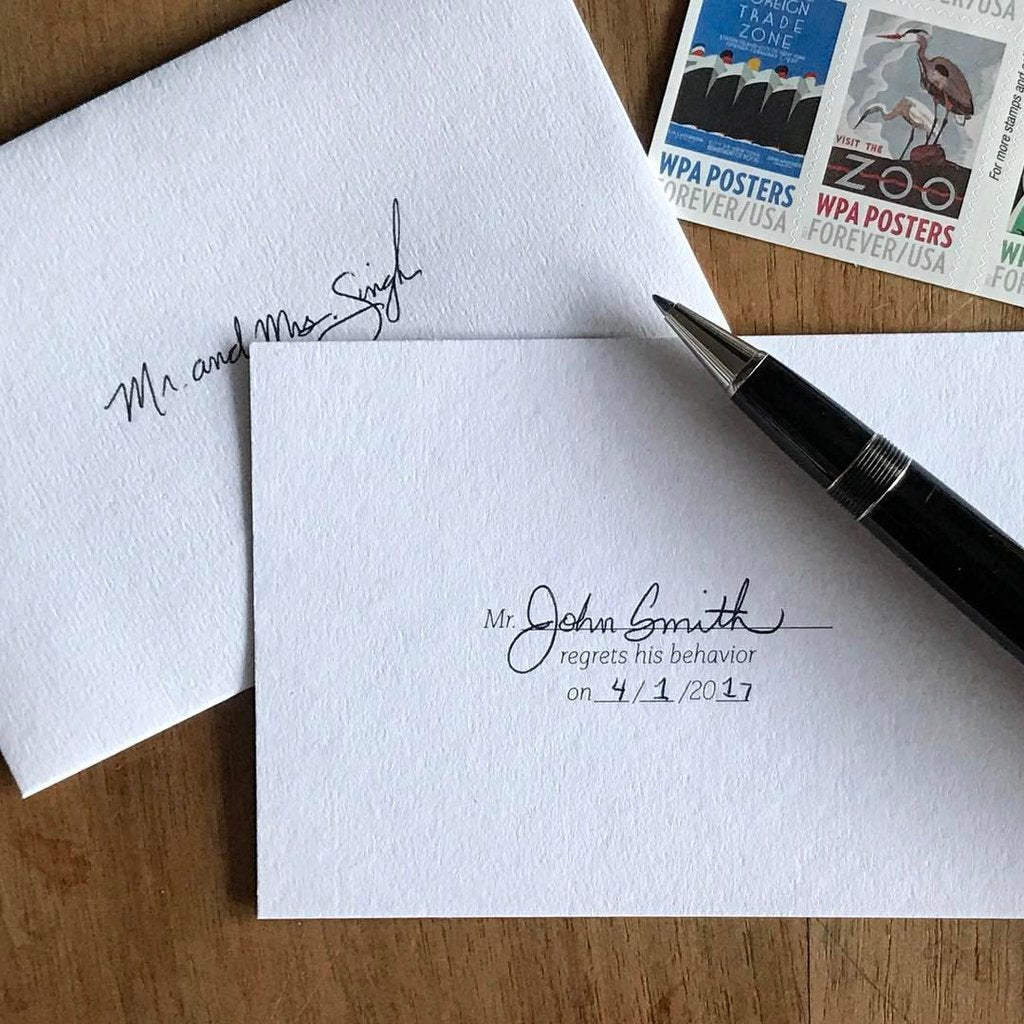 FOREIGN
TRADE
ZONE
WPA POSTERS
FOREVER/USA
VISIT THE
ZOO
WPA POSTERS
FOREVER/USA
For more stamps and
Mr. and Mrs. Singh
Mr. John Smith
regrets his behavior
on 4/1/2017